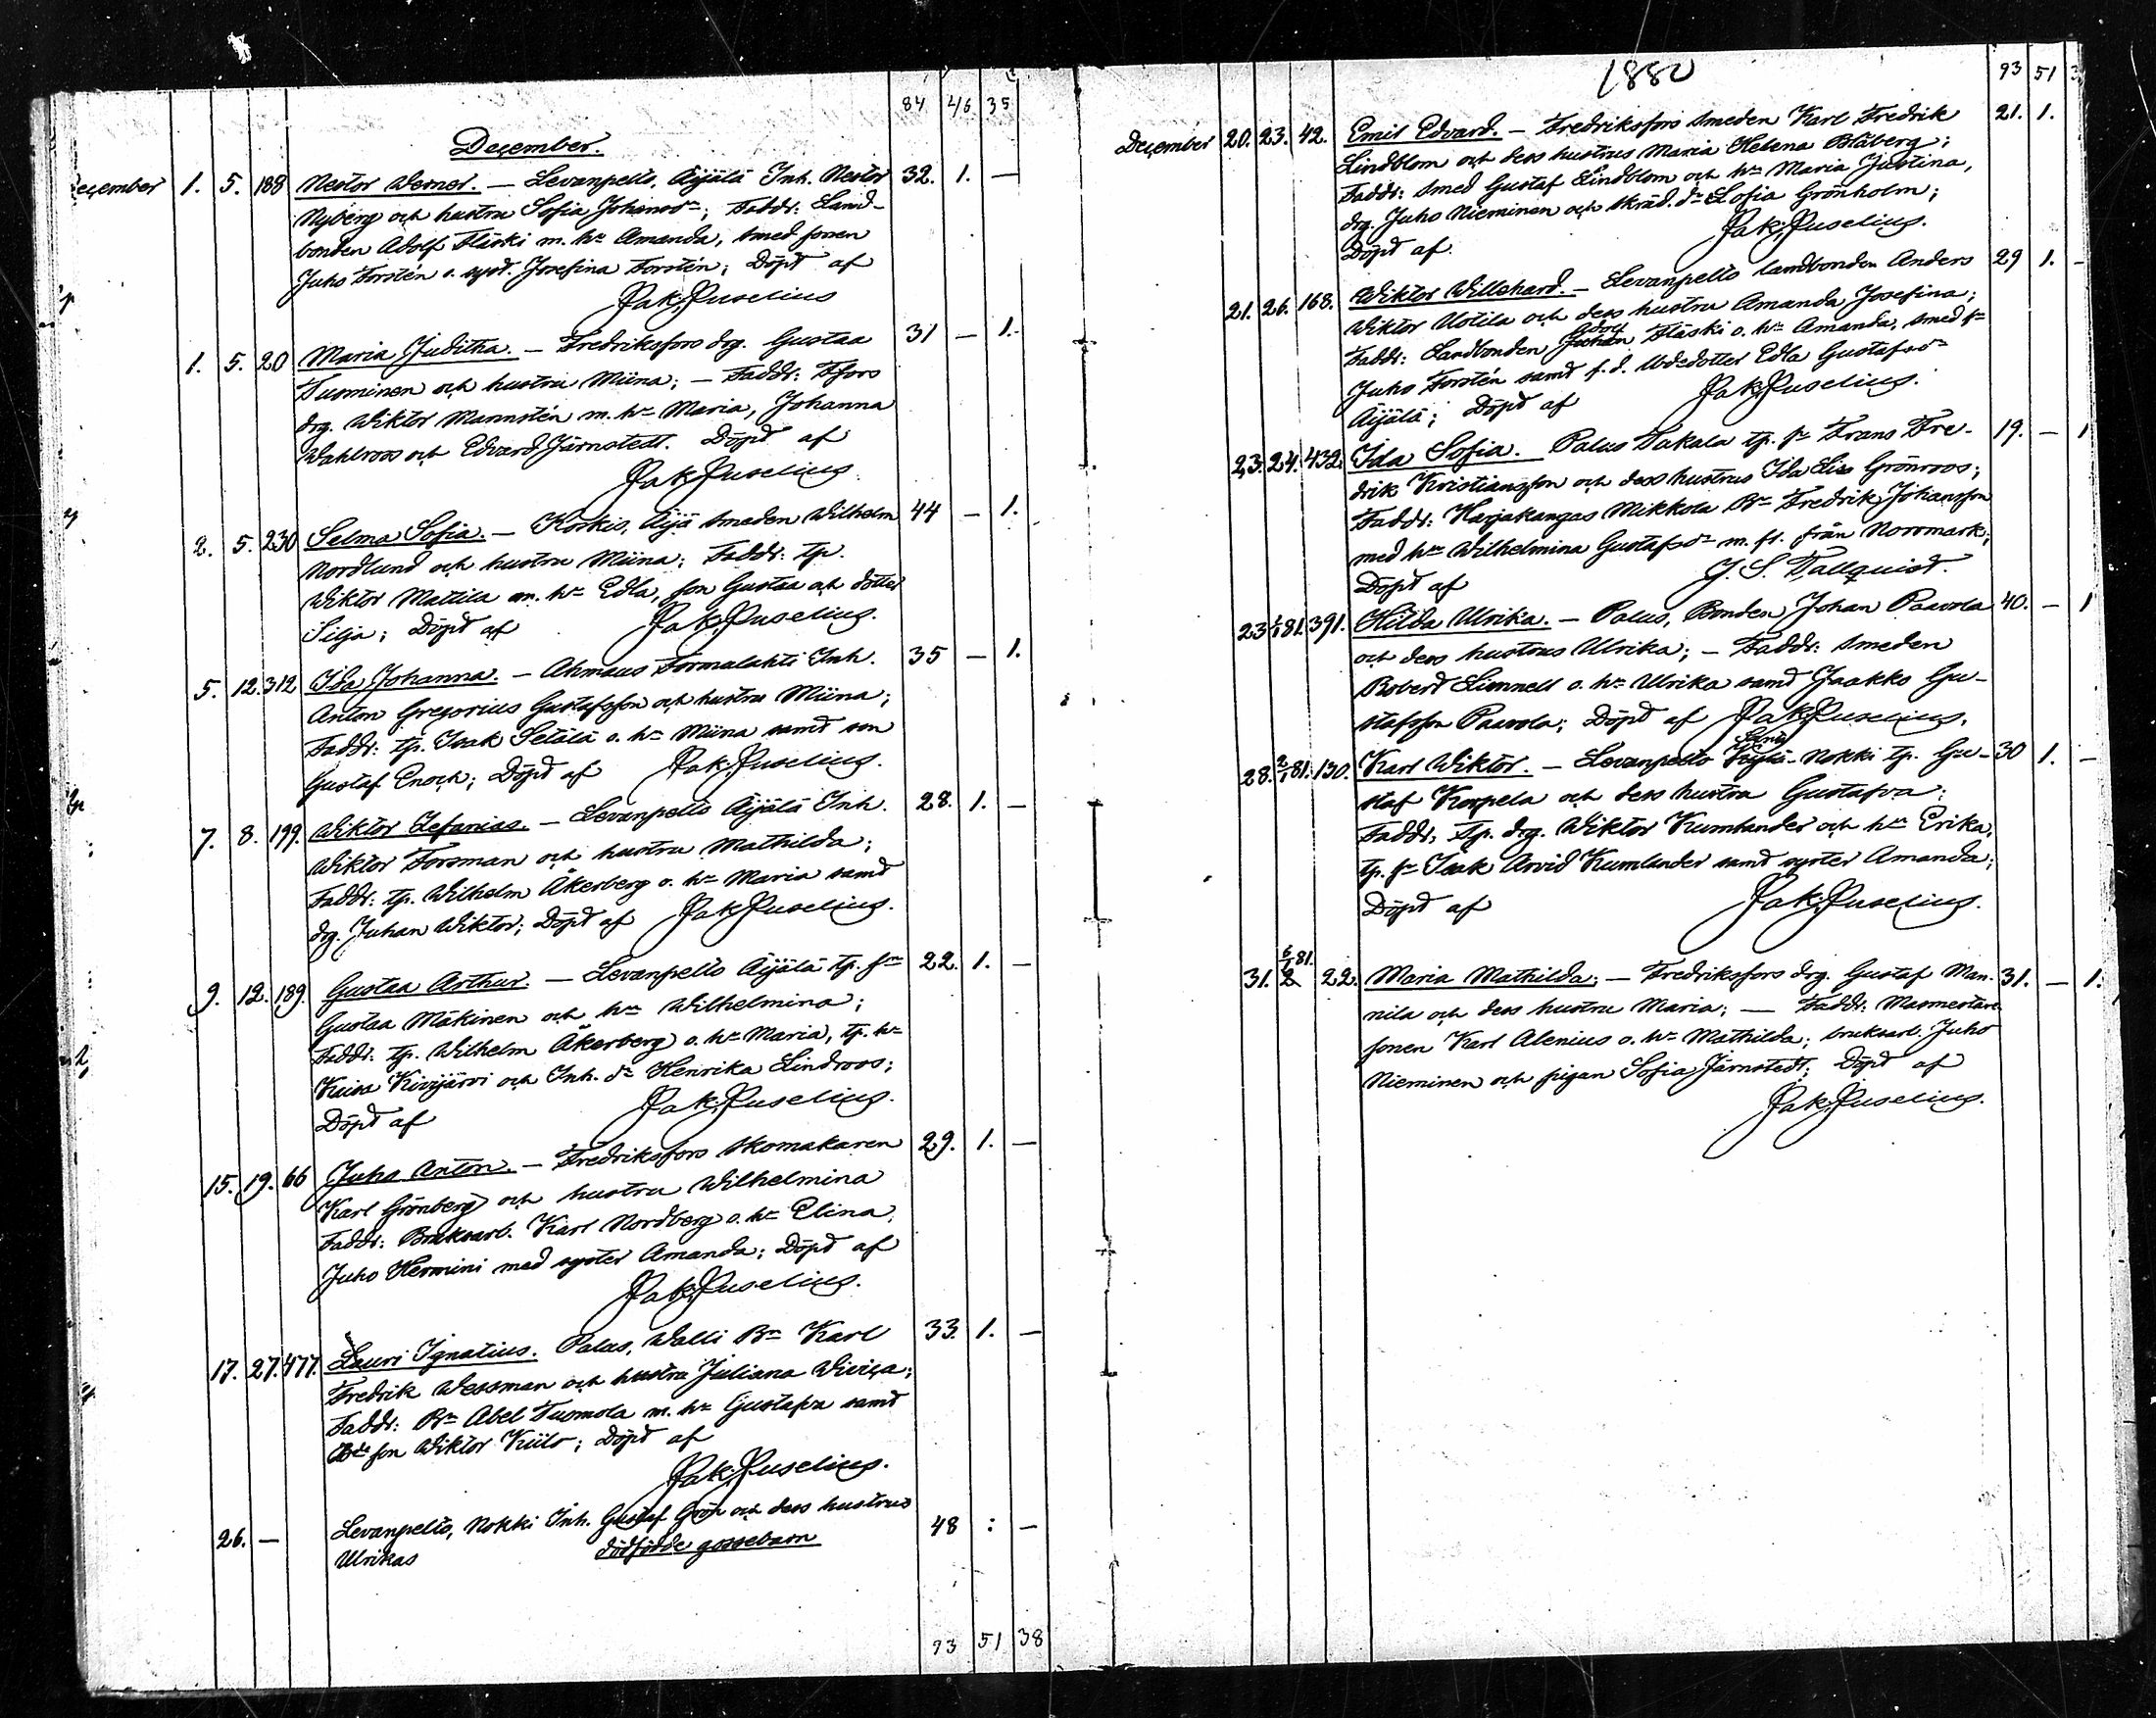 84 46 35
December.
December 1. 5. 188 Nestor Werner. — Levanpelto, Äijälä Inh. Nestor 32. 1. —
Nyberg och hustru Sofia Johansdr; Faddr: Land-
bonden Adolf Fläski m. hu Amanda, smed sonen
Juho Forstén o. syst. Josefina Forstén; Döpt af
Jak. Juselius
1. 5. 20 Maria Juditha. — Fredriksfors drg. Gustaa 31 — 1.
Tuominen och hustru Miina; — Faddr: Ffors
drg. Wiktor Mannstén m. hu Maria, Johanna
Wahlroos och Edvard Järnstedt. Döpt af
Jak Juselius
2. 5. 230 Selma Sofia. — Koskis, Äijä smeden Wilhelm 44 — 1.
Nordlund och hustru Miina; Faddr: tp.
Wiktor Mattila m. hu Edla, son Gustaa och dotter
Silja; Döpt af Jak. Juselius.
5. 12. 312 Ida Johanna. — Ahmaus Tormalahti Inh. 35 — 1.
Anton Gregorius Gustafsson och hustru Miina;
Faddr: tp. Isak Setälä o. hu Miina samt son
Gustaf Enoch; Döpt af Jak. Juselius.
7. 8. 199. Wiktor Zefanias. — Levanpelto Äijälä Inh. 28. 1. —
Wiktor Forsman och hustru Mathilda;
Faddr: tp. Wilhelm Åkerberg o. hu Maria samt
drg. Juhan Wiktor; Döpt af Jak Juselius.
9. 12. 189. Gustaa Arthur. — Levanpelto Äijälä tp. sn 22. 1. —
Gustaa Mäkinen och hu Wilhelmina;
Faddr: tp. Wilhelm Åkerberg o. hu Maria, tp. hu
Kivijärvi och Inh. dr Henrika Lindroos;
Döpt af Jak. Juselius.
15. 19. 66 Juho Anton. — Fredriksfors skomakaren 29. 1. —
Karl Grönberg och hustru Wilhelmina
Faddr: Bruksarb. Karl Nordberg o. hu Elina,
Juho Hermini med syster Amanda; Döpt af
Jak. Juselius.
17. 27. 477. Lauri Ignatius. Palus, Walli Bn Karl 33. 1. —
Fredrik Wessman och hustru Juliana Wivica;
Faddr: Bn Abel Tuomola m. hu Gustafva samt
son Wiktor Kiilo; Döpt af
Jak. Juselius.
26. — Levanpelto, Nokki Inh. Gustaf Grön och dess hustrus 48 : —
Ulrikas dödfödde gossebarn
93 51 38
1880
93 51 3
December 20. 23. 42. Emil Edvard. — Fredriksfors smeden Karl Fredrik 21. 1.
Lindblom och dess hustrus Maria Helena Blåberg;
Faddr: smed Gustaf Lindblom och hu Maria Justina,
drg. Juho Nieminen och skräd. dr Sofia Grönholm;
Döpt af Jak. Juselius.
21. 26. 168. Wiktor Willehard. — Levanpelto landbonden Anders 29 1. —
Wiktor Uotila och dess hustru Amanda Josefina;
Adolf
Faddr: Landbonden Juhan Fläski o. hu Amanda, smed sn
Juho Forstén samt f.d. dotter Edla Gustafsdr
Äijälä; Döpt af Jak Juselius.
23. 24. 432. Ida Sofia. Palus Takala tp. sn Frans Fre- 19. — 1
drik Kristiansson och dess hustrus Ida Lisa Grönroos;
Faddr: Harjakangas Mikkola Bn Fredrik Johansson
med hu Wilhelmina Gustafsdr m. fl. från Norrmark;
Döpt af G. S. Tallquist.
23 1/1 81. 391. Hilda Ulrika. — Palus, Bonden Johan Paavola 40. — 1
och dess hustrus Ulrika; — Faddr: smeden
Robert Lionnell o. hu Ulrika samt Jaakko Gu-
stafsson Paavola; Döpt af Jak Juselius.
28. 2/1 81. 130. Karl Wiktor. — Levanpelto -Nokki tp. Gu- 30 1. —
staf Kospela och dess hustru Gustafva;
Faddr: Tp. drg. Wiktor Kumlander och hu Erika,
tp. sn Isak Arvid Kumlander samt syster Amanda;
Döpt af Jak. Juselius.
31. 6/1 81. 22. Maria Mathilda; — Fredriksfors drg. Gustaf Man- 31. — 1.
nila och dess hustru Maria; — Faddr: Masmestare
sonen Karl Alenius o. hu Mathilda; bruksarb. Juho
Nieminen och pigan Sofia Järnstedt; Döpt af
Jak. Juselius.